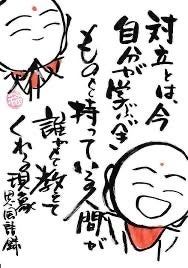 対立とは、今
自分が学ぶべき
ものを持っている人間が
誰かを教えて
くれる現象